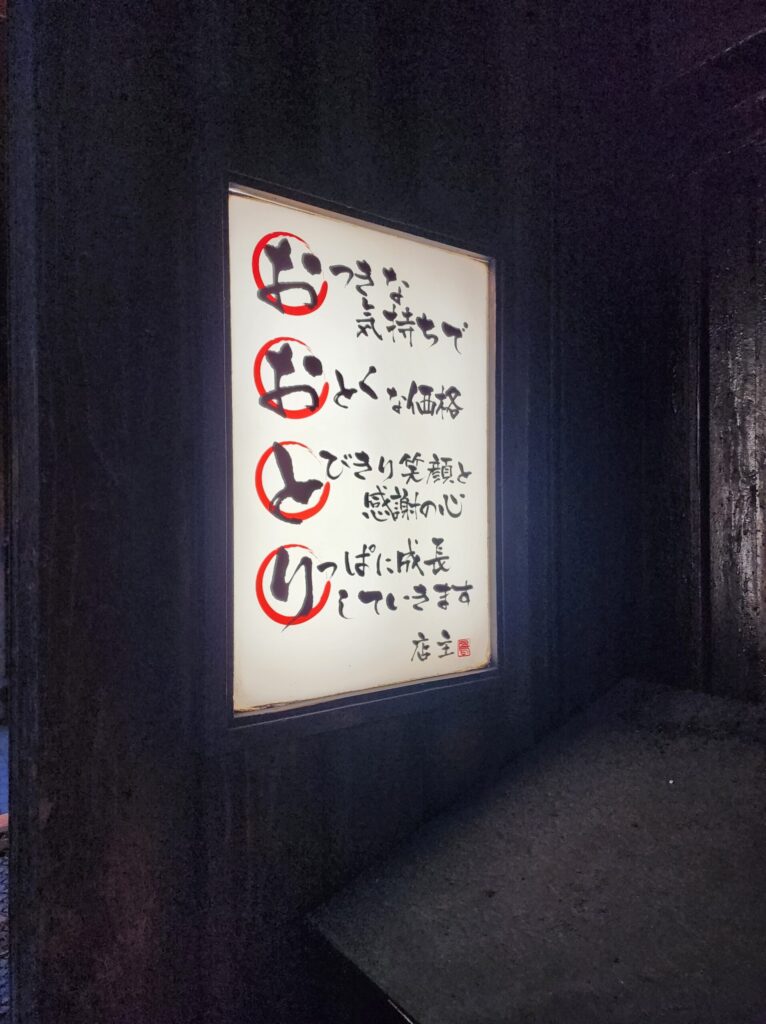 おつきな
気持ちで
おとくな価格
とびきり笑顔と
感謝の心
りっぱに成長
していきます
店主